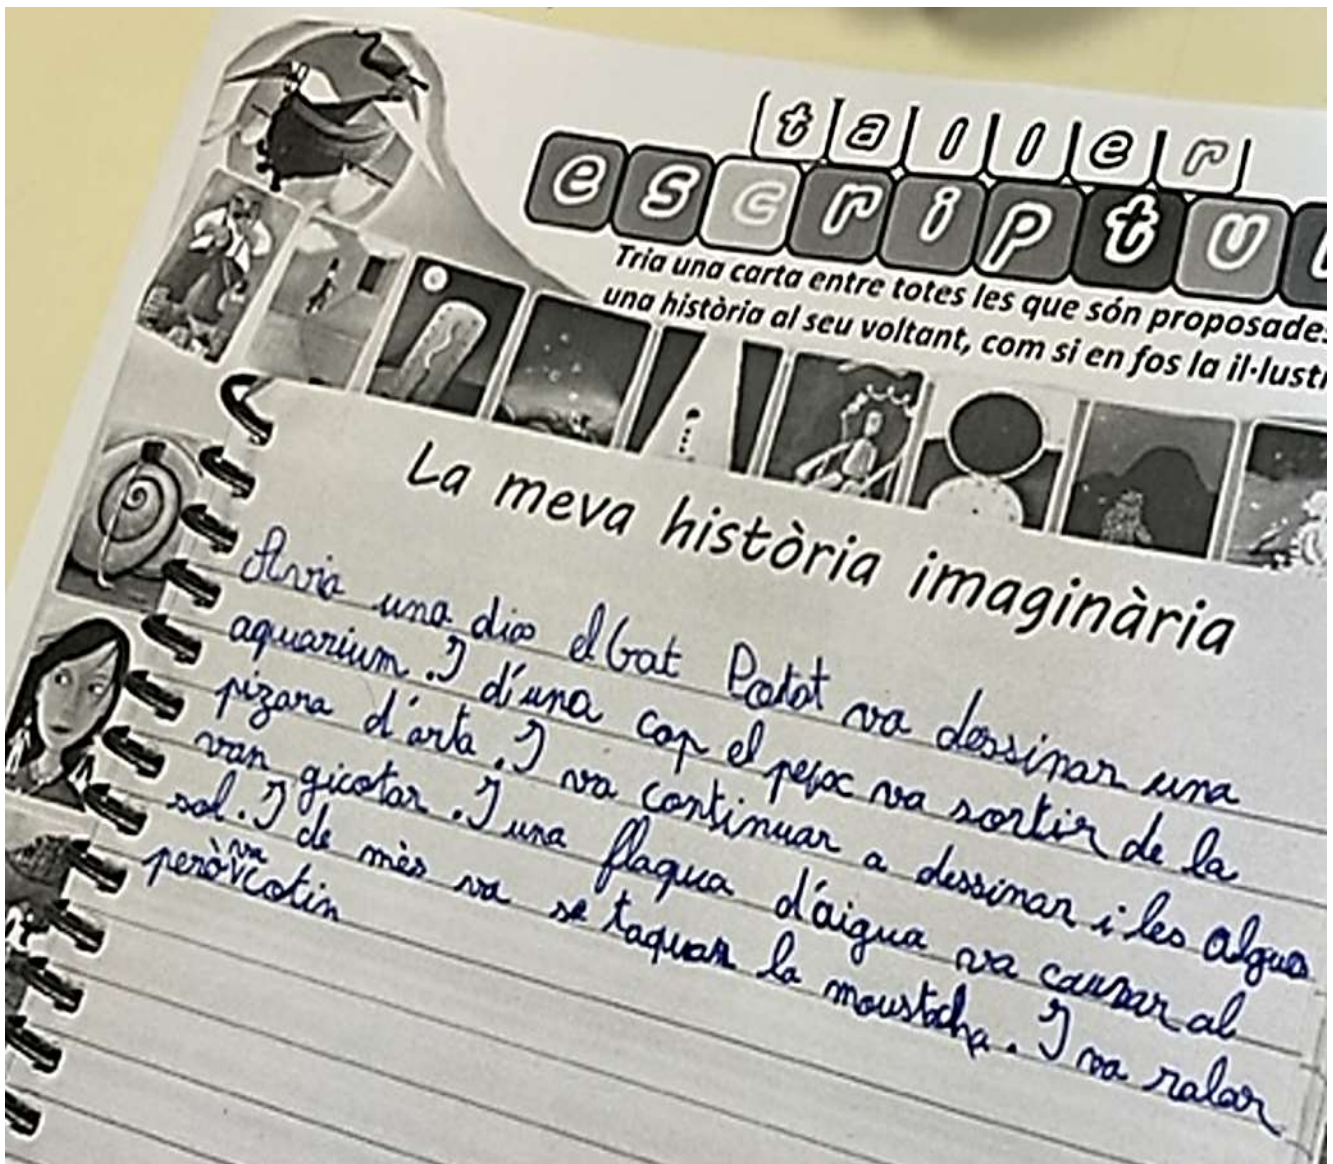 taller
escriptu
Tria una carta entre totes les que són proposades
una història al seu voltant, com si en fos la il·lust
La meva història imaginària
Avia una dia el Gat Patot va dessinar una
aquarium. I d'una cop el peix va sortir de la
pizara d'arta. I va continuar a dessinar i les algues
van gicotar. I una flaqua d'aigua va causar al
sol. I de mès va se taquar la moustacha. I va ralar
però va cotin